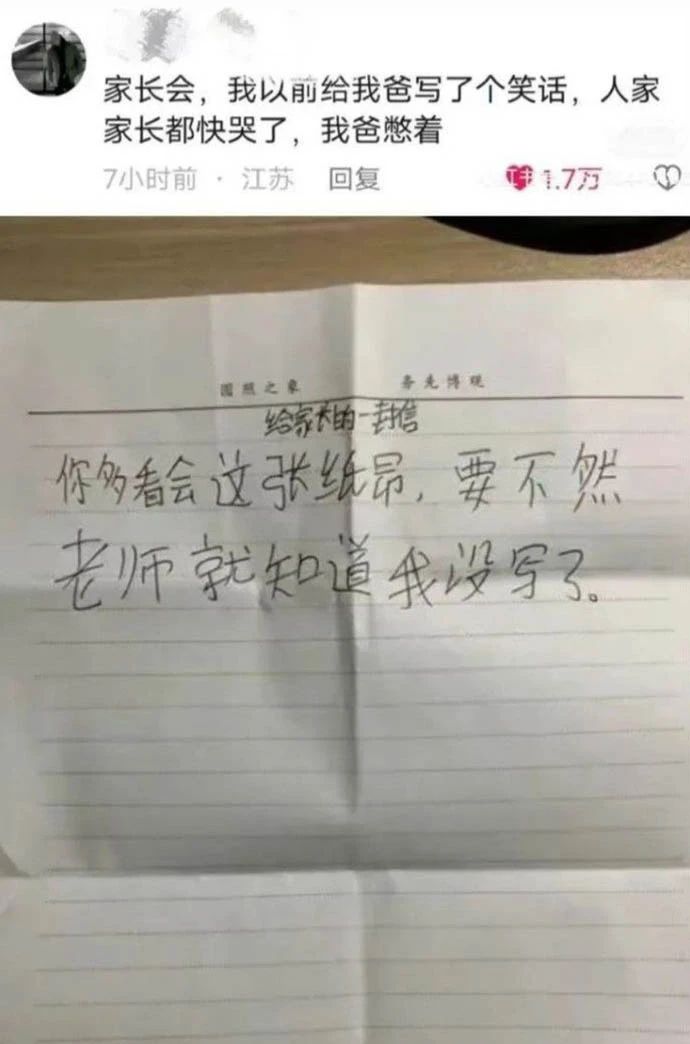 家长会，我以前给我爸写了个笑话，人家
家长都快哭了，我爸憋着
7小时前 · 江苏 回复 1.7万
圆照之象 务先博观
给家长的一封信
你多看会这张纸昂，要不然
老师就知道我没写了。